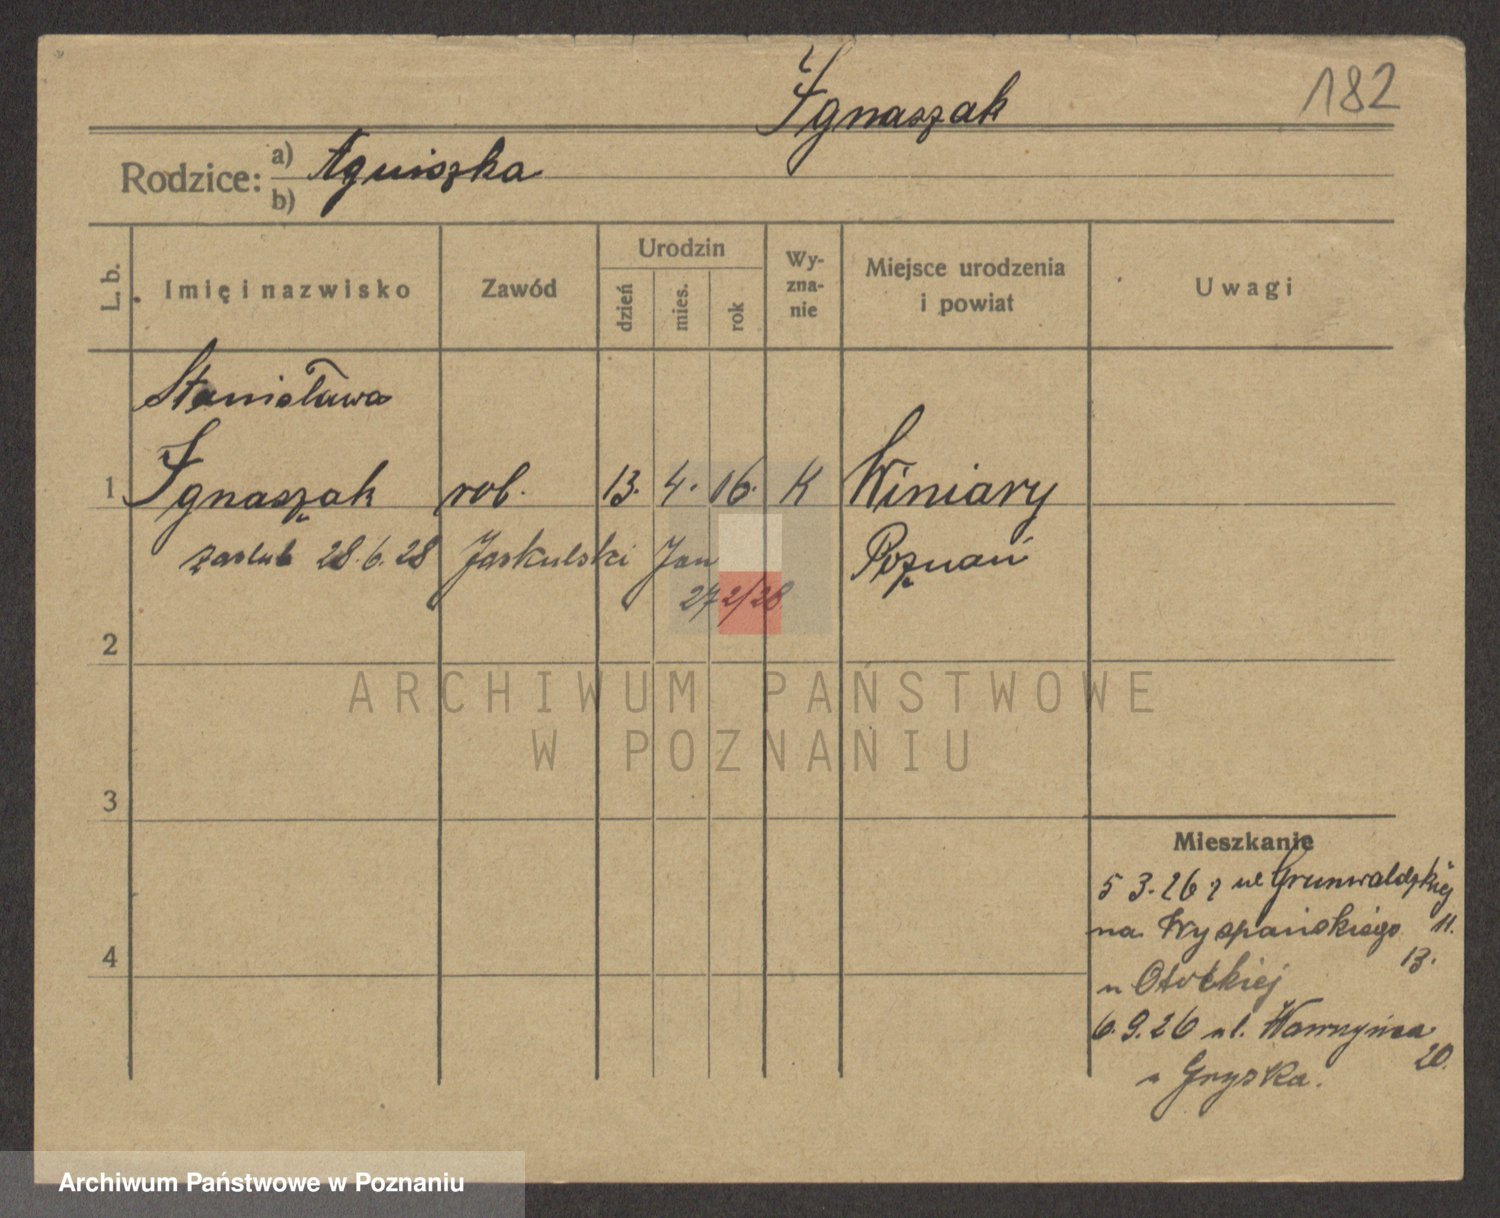 Ignaszak 182
Rodzice: a) Agniszka
b)
L. b. Imię i nazwisko Zawód Urodzin dzień mies. rok Wy-zna-nie Miejsce urodzenia i powiat Uwagi
Stanisława
1 Ignaszak rob. 13. 4. 16. K Winiary
zaślub 28.6.28 Jaskulski Jan Poznań
272/28
2
ARCHIWUM PAŃSTWOWE
W POZNANIU
3
Mieszkanie
5 3.26 z ul Grunwaldzkiej
na Wyspańskiego 11.
4
13.
u Otockiej
6.9.26 ul. Wawrzyńca
20.
u Gryska.
Archiwum Państwowe w Poznaniu